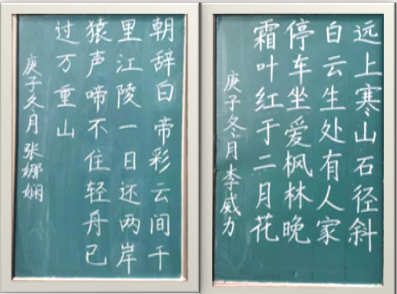 朝辞白帝彩云间千
里江陵一日还两岸
猿声啼不住轻舟已
过万重山
庚子冬月 张娜娴
远上寒山石径斜
白云生处有人家
停车坐爱枫林晚
霜叶红于二月花
庚子冬月李威力